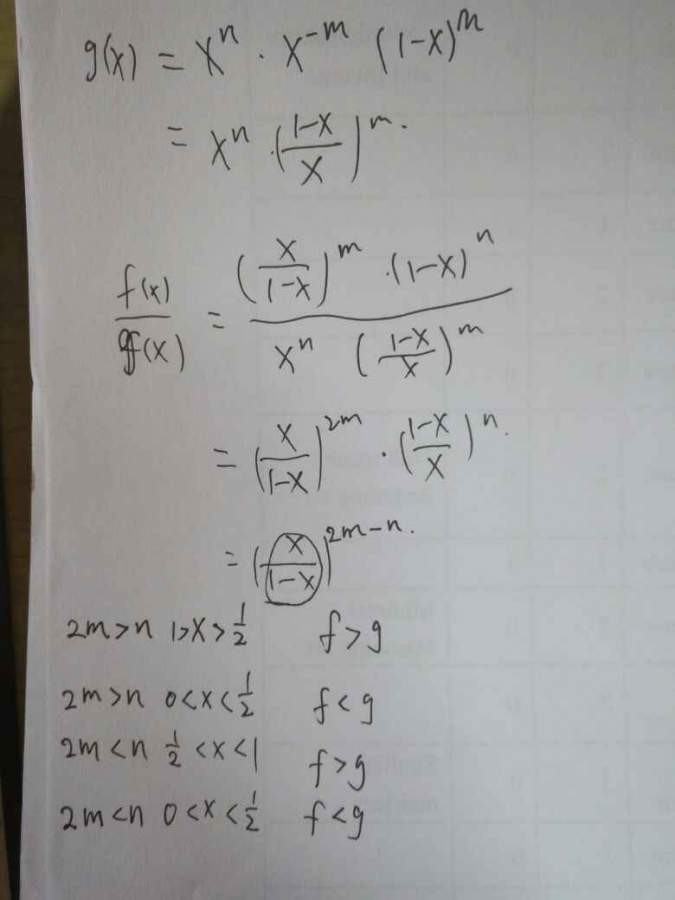 g(x) = xⁿ · x⁻ᵐ (1-x)ᵐ
= xⁿ · ((1-x)/x)ᵐ.
f(x)/g(x) = (x/(1-x))ᵐ · (1-x)ⁿ / xⁿ ((1-x)/x)ᵐ
= (x/(1-x))²ᵐ · ((1-x)/x)ⁿ.
= (x/(1-x))²ᵐ⁻ⁿ.
2m>n 1>x>1/2 f>g
2m>n 0<x<1/2 f<g
2m<n 1/2<x<1 f>g
2m<n 0<x<1/2 f<g